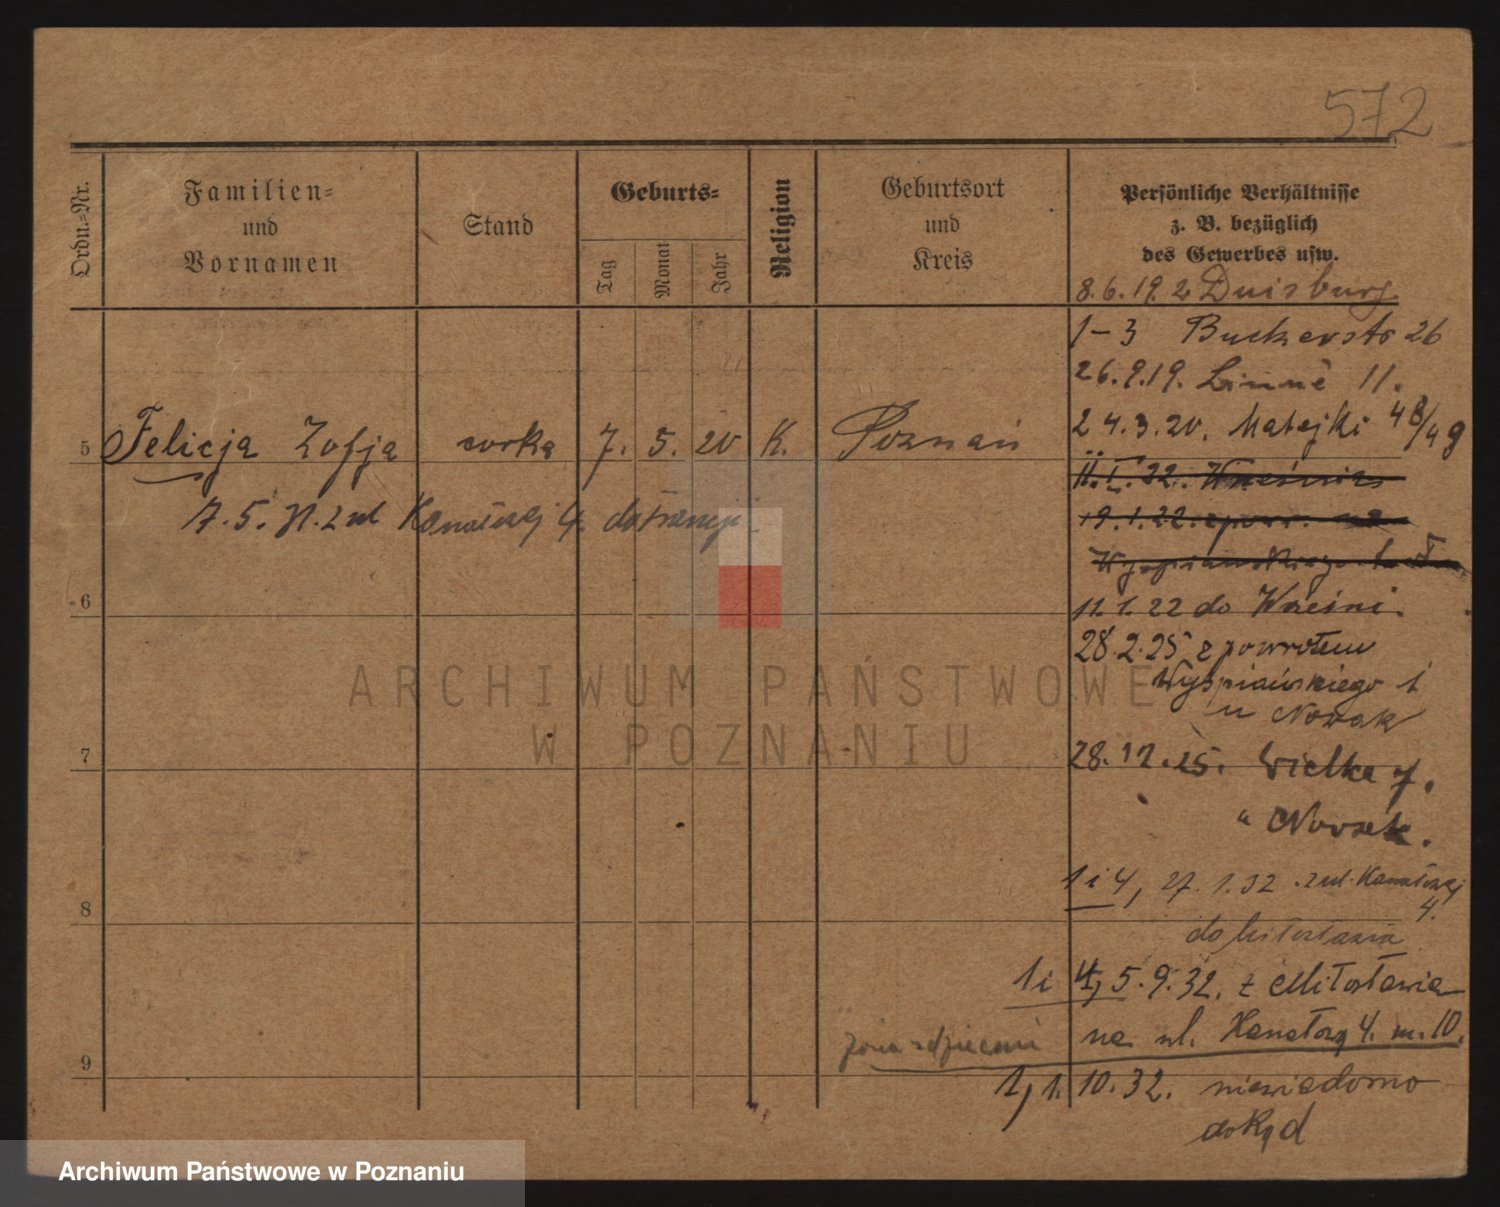 572
Ordn.-Nr.
Familien-
und
Vornamen
Stand
Geburts-
Tag
Monat
Jahr
Religion
Geburtsort
und
Kreis
Persönliche Verhältnisse
z. B. bezüglich
des Gewerbes usw.
8.6.19. 2 Duisburg
1-3 26
26.9.19. 11.
24.3.20. Matejki 48/49
5 Felicja Zofja corka 7. 5. 20 K. Poznań
11.I.22.
7.5. z ul Kanałowej 4.
19.1.22. z pow. na
Wyspiańskiego 1
6
12 1. 22 do Wrześni.
28.2.25 z powrotem
Wyspiańskiego 1
u Nowak
7
28.12.25. Wielka 7.
" Nowak.
1 i 4, 27.1.32 z ul. Kanałowej
4.
8
do Miłosławia
1 i 4, 5.9.32. z Miłosławia
na ul. Kanałową 4. m. 10.
żona z dziećmi
9
1, 1.10.32. niewiadomo
dokąd
ARCHIWUM PAŃSTWOWE
W POZNANIU
Archiwum Państwowe w Poznaniu